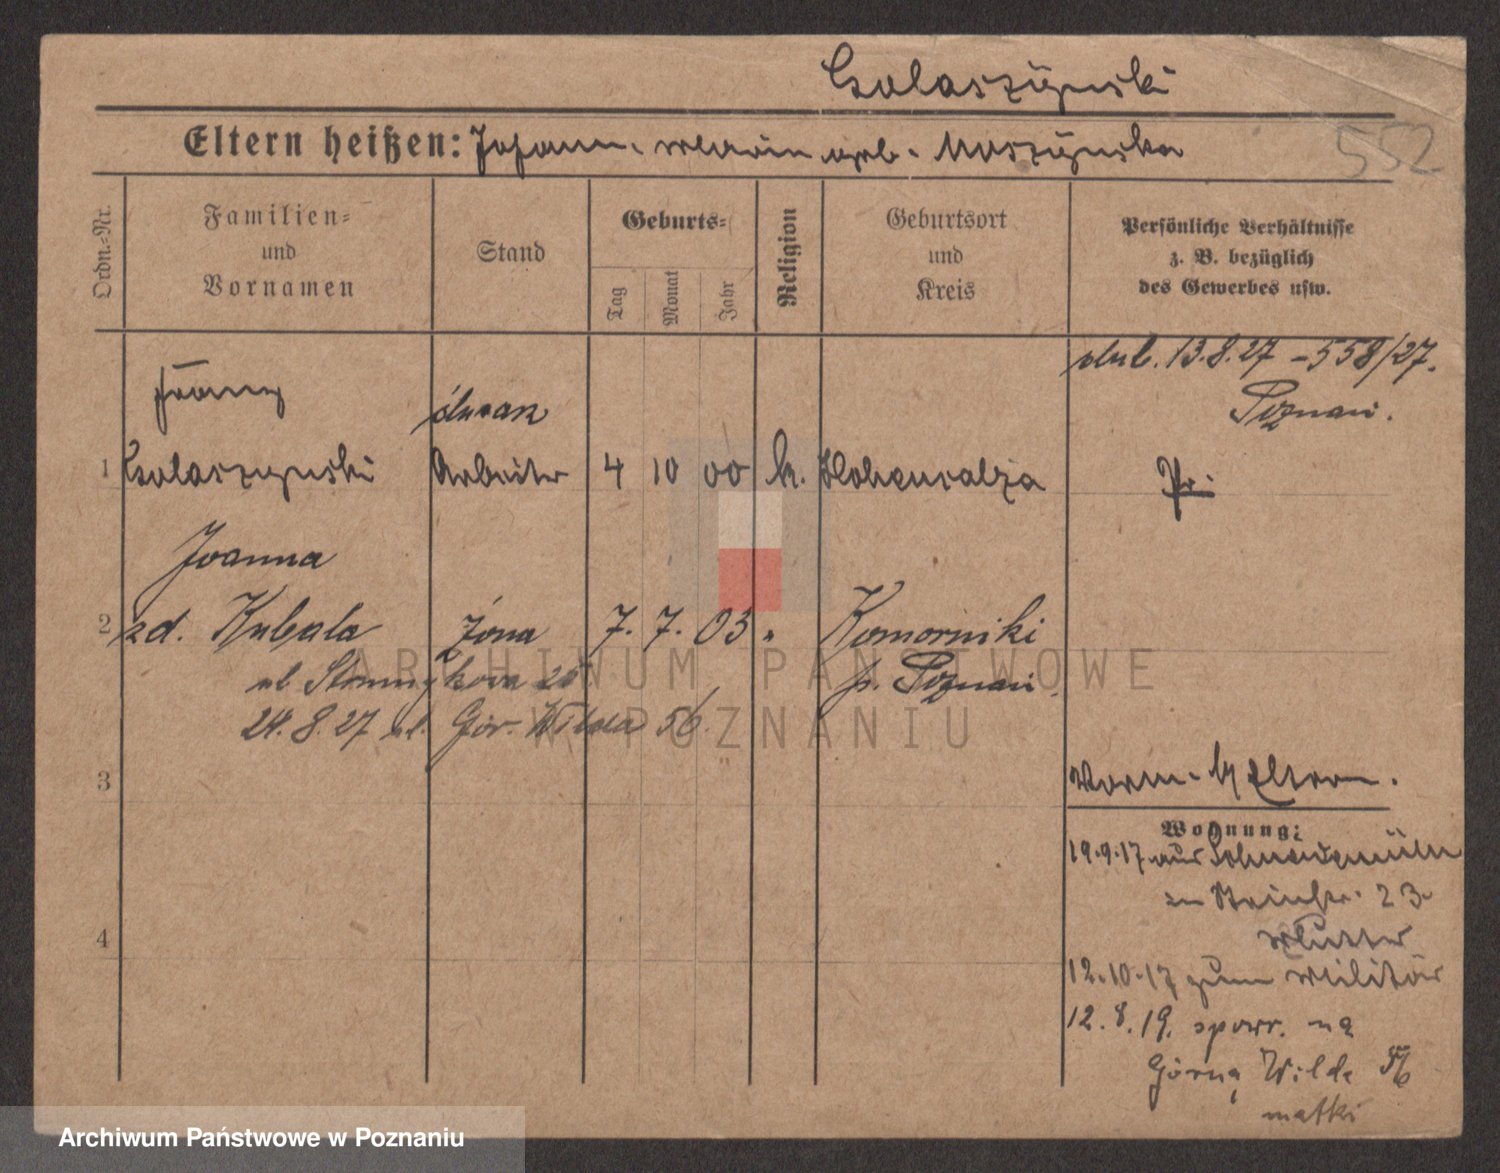 Golaszynski
Eltern heißen: Johann. Maria geb. Muszynska
552
Ordn.=Nr.
Familien=
und
Vornamen
Stand
Geburts=
Tag
Monat
Jahr
Religion
Geburtsort
und
Kreis
Persönliche Verhältnisse
z. B. bezüglich
des Gewerbes usw.
ślub. 13.8.27 – 558/27.
Poznań.
Franz
ślusarz
1 Golaszynski Arbeiter 4 10 00 k. Hohensalza Pr.
Joanna
2 zd. Kubala żona 7. 7. 03 " Komorniki
ul. 26 p. Poznań.
24.8.27 ul. Gór. Wilda 56.
3
Vorm. b/ Eltern.
Wohnung:
19.9.17 aus Schneidemühl
zu 23.
Mutter
4
12.10.17 zum Militär
12.8.19. spowr. na
Górną Wildę 56
matki
ARCHIWUM PAŃSTWOWE
W POZNANIU
Archiwum Państwowe w Poznaniu